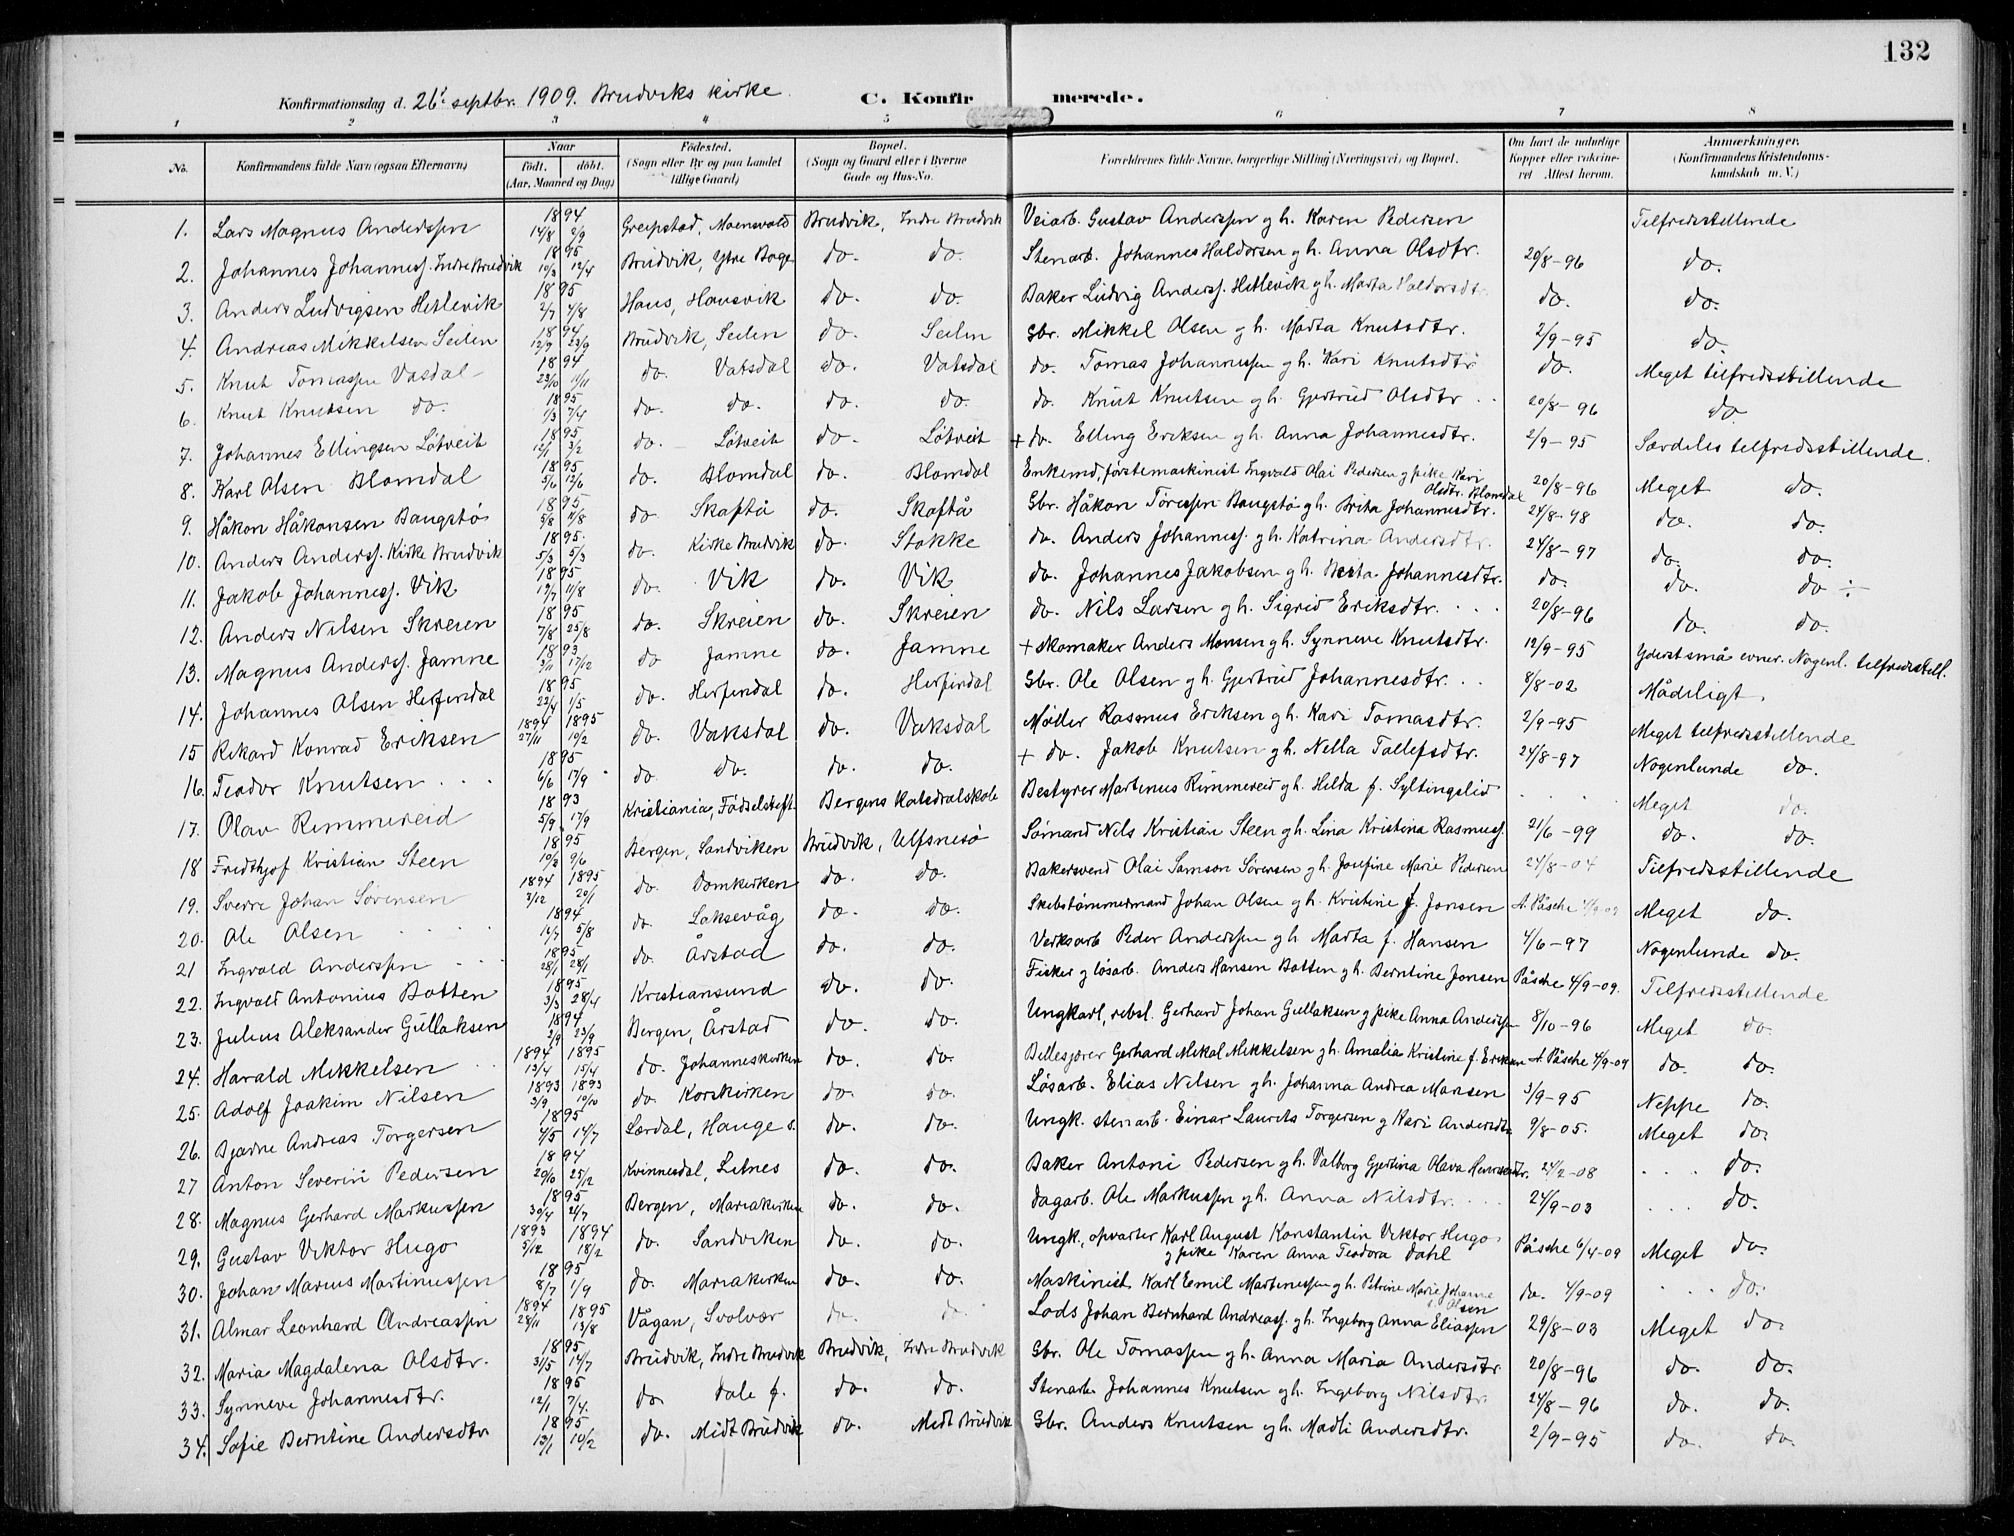 132
Konfirmationsdag d. 26' septbr. 1909. Brudviks kirke. C. Konfirmerede.
1 2 3 4 5 6 7 8
No. Konfirmandens fulde Navn (ogsaa Efternavn) Naar født. døbt. (Aar, Maaned og Dag) Fødested. (Sogn eller By og paa Landet tillige Gaard) Bopæl. (Sogn og Gaard eller i Byerne Gade og Hus-No. Forældrenes fulde Navne, borgerlige Stilling (Næringsvei) og Bopæl. Om havt de naturlige Kopper eller vakcineret Attest herom. Anmærkninger. (Konfirmandens Kristendomskundskab m. V.)
1. Lars Magnus Anderssen 1894 14/8 2/9 Greipstad, Moensvold Brudvik, Indre Brudvik Veiarb. Gustav Anderssen g h. Karen Pedersen Tilfredsstillende
2. Johannes Johanness. Indre Brudvik 1895 19/3 12/4 Brudvik, Ytre Boge do. do. Stenarb. Johannes Haldorsen g h. Anna Olsdtr. 20/8-96 do.
3. Anders Ludvigsen Hetlevik 1895 2/7 4/8 Haus, Hausvik do. do. Baker Ludvig Anderss. Hetlevik g h. Marta Haldorsdtr. do. do.
4. Andreas Mikkelsen Seilen 1894 12/9 23/9 Brudvik, Seilen do. Seilen Gbr. Mikkel Olsen g h. Marta Knutsdtr. 2/9-95 do.
5. Knut Tomassen Vasdal 1894 23/10 11/11 do. Vatsdal do. Vatsdal do. Tomas Johannessen g h. Kari Knutsdtr do. Meget tilfredsstillende
6. Knut Knutsen do. 1895 1/3 7/4 do. do. do. do. do. Knut Knutsen g h. Gjertrud Olsdtr 20/8-96 do
7. Johannes Ellingsen Løtveit 1895 12/1 3/2 do. Løtveit do. Løtveit + do. Elling Eriksen g h. Anna Johannesdtr. 2/9-95 Særdeles tilfredsstillende.
8. Karl Olsen Blomdal 1895 5/6 12/6 do. Blomdal do. Blomdal Enkemd, førstemaskinist Ingvald Olai Pedersen g pike Kari Olsdtr. Blomdal 20/8-96 Meget do.
9. Håkon Håkonsen Baugstø 1895 5/8 11/8 do Skaftå do. Skaftå Gbr. Håkon Toressen Baugstø g h. Brita Johannesdtr. 24/8-98 do. do.
10. Anders Anderss. Kirke Brudvik 1895 5/3 5/3 do. Kirke Brudvik do. Stokke do. Anders Johanness. g h. Katrina Andersdtr. 24/8-97 do. do.
11. Jakob Johanness. Vik 1895 19/7 11/8 do. Vik do. Vik do. Johannes Jakobsen g h. Brita Johannesdtr. do. do. do ÷
12. Anders Nilsen Skreien 1895 7/8 25/8 do. Skreien do. Skreien do. Nils Larsen g h. Sigrid Eriksdtr. 20/8-96 do. do.
13. Magnus Anderss. Jamne 1893 3/11 17/12 do Jamne do. Jamne + skomaker Anders Monsen g h. Synneve Knutsdtr. 12/9-95 Yderst små evner. Nogenl. tilfredsstill.
14. Johannes Olsen Herfindal 1895 22/4 1/5 do. Herfindal do. Herfindal Gbr. Ole Olsen g h. Gjertrud Johannesdtr. 8/8-02 Mådeligt.
15 Rikard Konrad Eriksen 1894 27/11 1895 10/2 do. Vaksdal do. Vaksdal Møller Rasmus Eriksen g h. Kari Tomasdtr. 2/9-95 Meget tilfredsstillende
16. Teodor Knutsen 1895 6/6 17/9 do do. do. do. + do. Jakob Knutsen g h. Nella Tollefsdtr. 24/8-97 Nogenlunde do.
17. Olav Rimmereid 1893 5/9 17/9 Kristiania, Fødselsstift. Bergens Katedralskole Bestyrer Martenus Rimmereid g h. Hilda f. Syltingslid Meget do.
18 Fredthjof Kristian Steen 1895 10/2 9/6 Bergen, Sandviken Brudvik, Ulfsnesø Sømand Nils Kristian Steen g h. Lina Kristina Rasmuss. 21/6-99 do. do.
19. Sverre Johan Sørensen 1894 3/12 1895 20/1 do. Domkirken do. do. Bakersvend Olai Samson Sørensen g h. Josefine Marie Pedersen 24/8-04 Tilfredsstillende
20. Ole Olsen 1894 14/7 5/8 do Laksevåg do. do. Skibstømmermand Johan Olsen g h. Kristine f. Jonsen A. Påsche 4/9-09 Meget do.
21 Ingvald Anderssen 1895 28/1 28/1 do. Årstad do. do. Verksarb Peder Anderssen g h. Marta f. Hansen 4/6-97 Nogenlunde do.
22. Ingvald Antonius Botten 1895 3/3 28/4 Kristiansund do. do. Fisker g løsarb. Anders Hansen Botten g h. Berntine Jonsen Påsche 4/9-09. Tilfredsstillende
23. Julius Aleksander Gullaksen 1894 2/9 23/9 Bergen, Årstad do. do. Ungkarl, rebsl. Gerhard Johan Gullaksen g pike Anna Anderssen 8/10-96 Meget do.
24. Harald Mikkelsen 1894 13/4 1895 15/4 do. Johanneskirken do. do. Billedskjærer Gerhard Mikal Mikkelsen g h. Amalia Kristine f. Eriksen A. Påsche 4/9-09 do. do.
25. Adolf Joakim Nilsen 1893 3/9 1893 10/10 do. Korskirken do. do. Løsarb. Elias Nilsen g h. Johanna Andrea Mansen 3/9-95 Neppe do.
26. Bjarne Andreas Torgersen 1895 4/5 14/7 Lærdal, Hauge s. do. do. Ungk. stenarb. Einar Laurits Torgersen g Kari Andersdtr 9/8-05. Meget do.
27 Anton Severin Pedersen 1894 20/10 25/12 Kvinnesdal, Litnes do. do. Baker Antoni Pedersen g h. Valborg Gjertina Olava Henriksdtr. 24/2-08 do.
28. Magnus Gerhard Markussen 1895 30/4 21/7 Bergen, Mariakirken do. do. Dagarb. Ole Markussen g h. Anna Nilsdtr. 24/9-03 do.
29. Gustav Viktor Hugo 1893 5/12 1894 18/2 do. Sandviken do. do. Ungk., opvarter Karl August Konstantin Viktor Hugo g pike Karen Anna Teodora Dahl Påsche 6/4-09 Meget do.
30. Johan Marius Martinussen 1895 8/7 1/9 do. Mariakirken do. do. Maskinist Karl Emil Martinussen g h. Petrine Marie Johanne Olsen do. 4/9-09 do.
31. Almar Leonhard Andreassen 1894 28/11 1895 13/8 Vågan, Svolvær do. do. Lods Johan Bernhard Andreass. g h. Ingeborg Anna Eliassen 29/8-03 Meget do.
32. Maria Magdalena Olsdtr. 1895 31/5 14/7 Brudvik, Indre Brudvik Brudvik, Indre Brudvik Gbr. Ole Tomassen g h. Anna Maria Andersdtr 20/8-96 do. do.
33. Synneve Johannesdtr. 1895 12/1 7/4. do Dale f. do. do. Stenarb. Johannes Knutsen g h. Ingeborg Nilsdtr. 24/8-96 do. do.
34. Sofie Berntine Andersdtr 1895 13/1 10/2 do. Midt Brudvik do. Midt Brudvik Gbr. Anders Knutsen g h. Madli Andersdtr. 2/9-95 do. do.